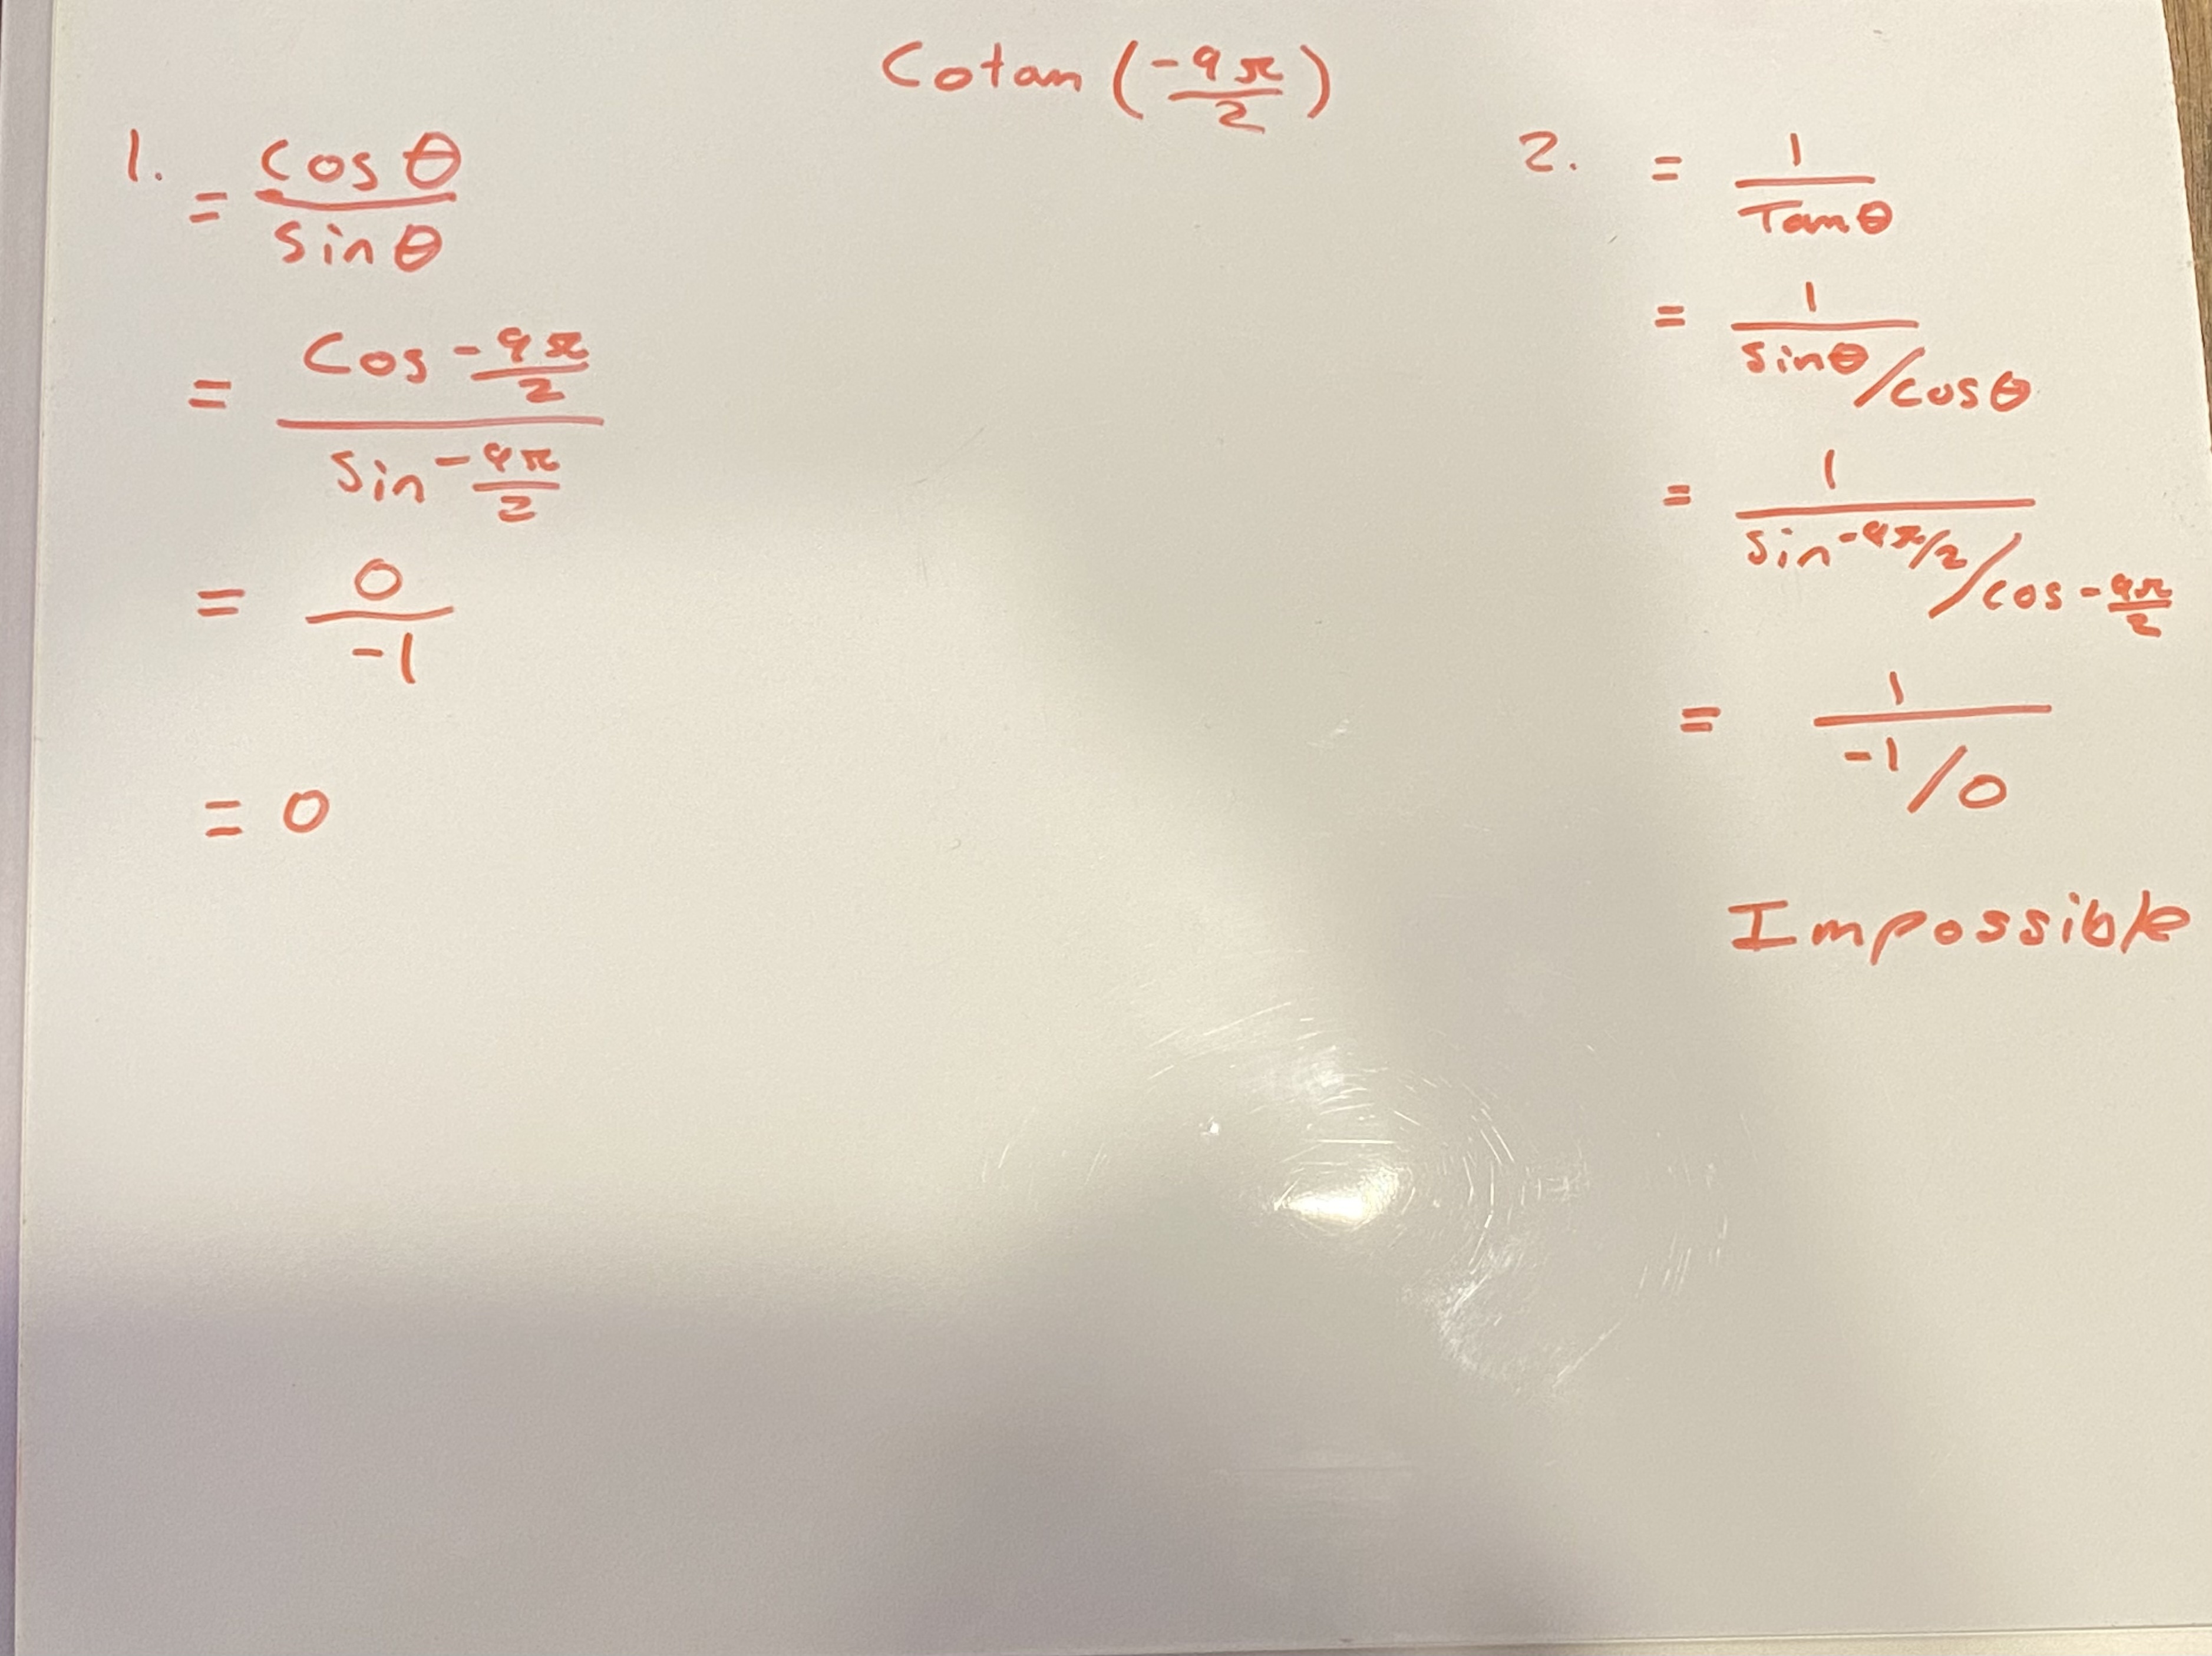 Cotan (-9π/2)
1. = cos θ / sin θ
= Cos -9π/2 / Sin -9π/2
= 0 / -1
= 0
2. = 1 / Tan θ
= 1 / sin θ/cos θ
= 1 / sin -9π/2/cos -9π/2
= 1 / -1/0
Impossible